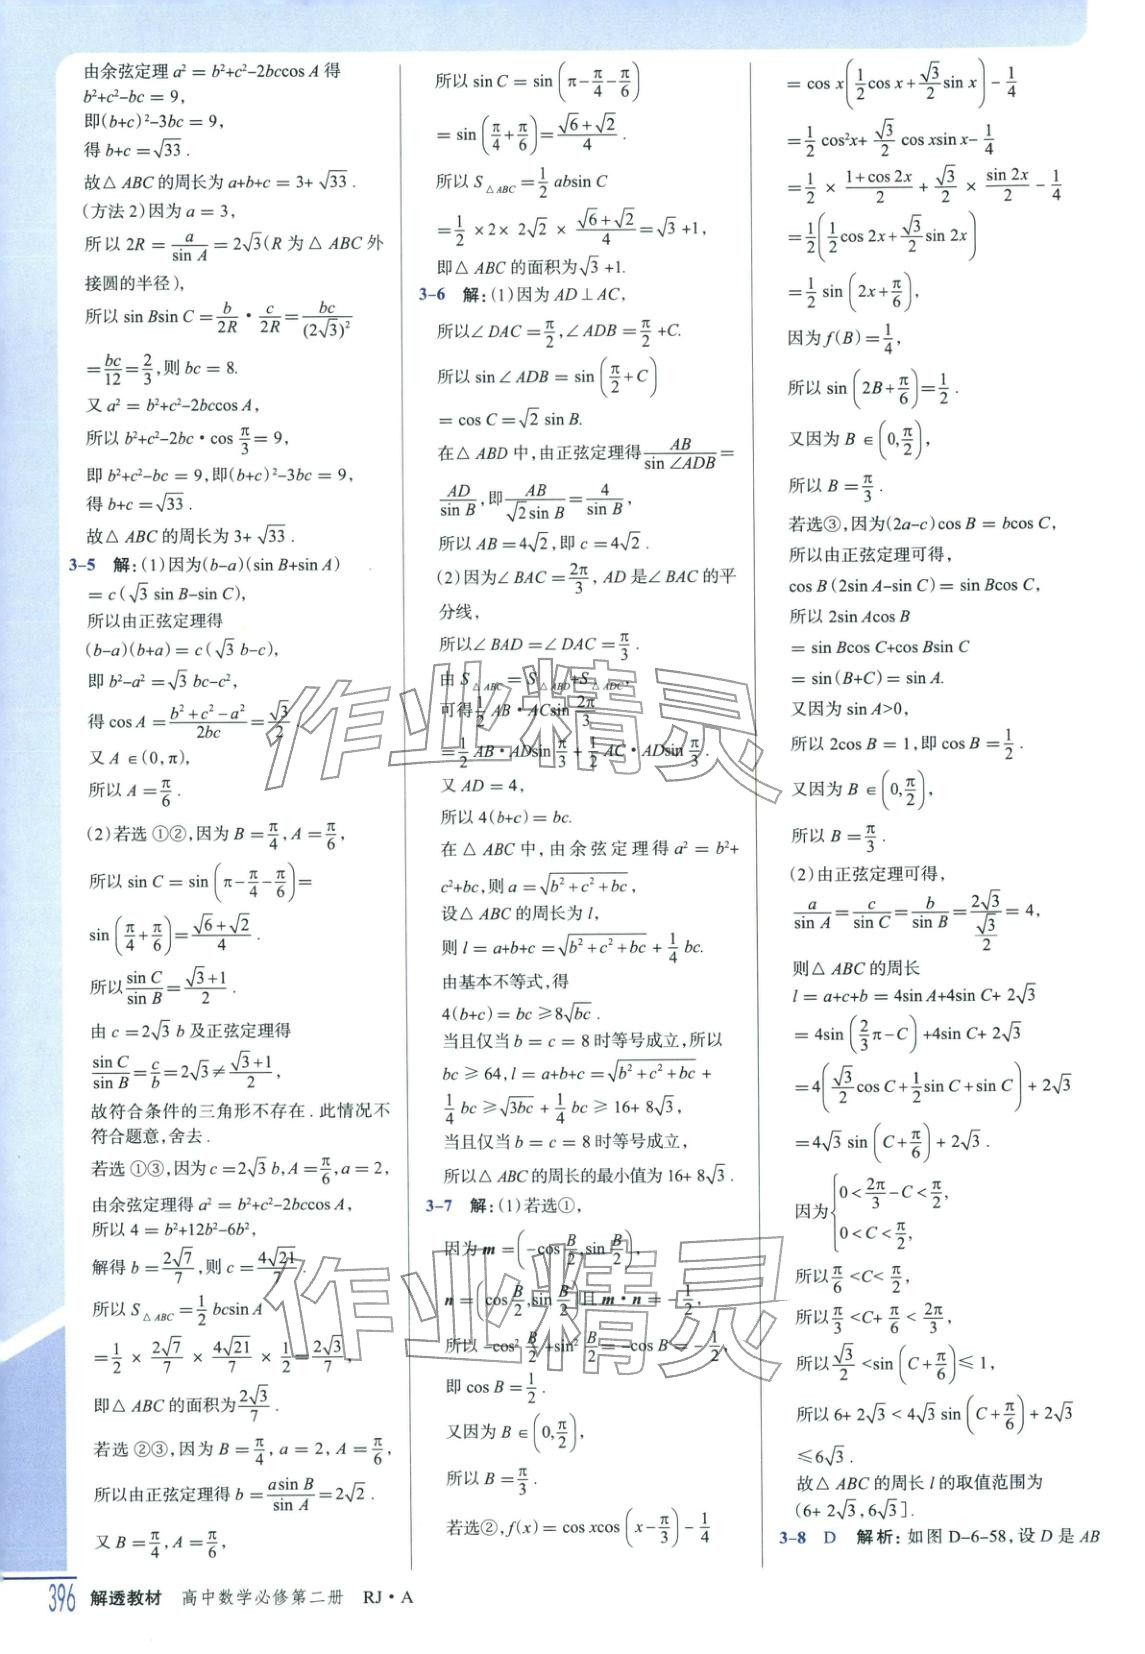 由余弦定理 a² = b²+c²-2bccos A 得
b²+c²-bc = 9,
即(b+c)²-3bc = 9,
得 b+c = √33 .
故△ ABC 的周长为 a+b+c = 3+ √33 .
(方法 2)因为 a = 3,
所以 2R = a/sin A = 2√3 (R 为 △ ABC 外
接圆的半径),
所以 sin Bsin C = b/2R · c/2R = bc/(2√3)²
= bc/12 = 2/3, 则 bc = 8.
又 a² = b²+c²-2bccos A,
所以 b²+c²-2bc · cos π/3 = 9,
即 b²+c²-bc = 9,即(b+c)²-3bc = 9,
得 b+c = √33 .
故△ ABC 的周长为 3+ √33 .
3-5 解:(1)因为(b-a)(sin B+sin A)
= c (√3 sin B-sin C),
所以由正弦定理得
(b-a)(b+a) = c (√3 b-c),
即 b²-a² = √3 bc-c²,
得 cos A = (b²+c²-a²)/2bc = √3/2 .
又 A ∈(0, π),
所以 A = π/6 .
(2)若选 ①②,因为 B = π/4, A = π/6,
所以 sin C = sin (π - π/4 - π/6) =
sin (π/4 + π/6) = (√6+√2)/4 .
所以 sin C/sin B = (√3+1)/2 .
由 c = 2√3 b 及正弦定理得
sin C/sin B = c/b = 2√3 ≠ (√3+1)/2,
故符合条件的三角形不存在 . 此情况不
符合题意,舍去 .
若选 ①③,因为 c = 2√3 b, A = π/6, a = 2,
由余弦定理得 a² = b²+c²-2bccos A,
所以 4 = b²+12b²-6b²,
解得 b = 2√7/7, 则 c = 4√21/7 .
所以 S△ABC = 1/2 bcsin A
= 1/2 × 2√7/7 × 4√21/7 × 1/2 = 2√3/7,
即△ ABC 的面积为 2√3/7 .
若选 ②③,因为 B = π/4, a = 2, A = π/6,
所以由正弦定理得 b = asin B/sin A = 2√2 .
又 B = π/4, A = π/6,
所以 sin C = sin (π - π/4 - π/6)
= sin (π/4 + π/6) = (√6+√2)/4 .
所以 S△ABC = 1/2 absin C
= 1/2 ×2× 2√2 × (√6+√2)/4 = √3 +1,
即△ ABC 的面积为√3 +1.
3-6 解:(1)因为 AD⊥AC,
所以∠ DAC = π/2, ∠ ADB = π/2 +C.
所以 sin∠ ADB = sin (π/2 + C)
= cos C = √2 sin B.
在△ ABD 中,由正弦定理得 AB/sin ∠ADB =
AD/sin B, 即 AB/√2sin B = 4/sin B,
所以 AB = 4√2, 即 c = 4√2 .
(2)因为∠ BAC = 2π/3, AD 是∠ BAC 的平
分线,
所以∠ BAD =∠ DAC = π/3 .
由 S△ABC = S△ABD + S△ADC,
可得 1/2 AB · ACsin 2π/3
= 1/2 AB · ADsin π/3 + 1/2 AC · ADsin π/3 .
又 AD = 4,
所以 4(b+c) = bc.
在 △ ABC 中,由余弦定理得 a² = b²+
c²+bc,则 a = √(b²+c²+bc),
设△ ABC 的周长为 l,
则 l = a+b+c = √(b²+c²+bc) + 1/4 bc.
由基本不等式,得
4(b+c) = bc ≥8√bc .
当且仅当 b = c = 8 时等号成立,所以
bc ≥ 64, l = a+b+c = √(b²+c²+bc) +
1/4 bc ≥ √3bc + 1/4 bc ≥ 16+ 8√3,
当且仅当 b = c = 8 时等号成立,
所以△ ABC 的周长的最小值为 16+ 8√3 .
3-7 解:(1)若选①,
因为 m = (-cos B/2, sin B/2),
n = (cos B/2, sin B/2), 且 m · n = -1/2,
所以 -cos² B/2 + sin² B/2 = -cos B = -1/2,
即 cos B = 1/2 .
又因为 B ∈ (0, π/2),
所以 B = π/3 .
若选②, f(x) = cos xcos (x - π/3) - 1/4
= cos x (1/2 cos x + √3/2 sin x) - 1/4
= 1/2 cos²x+ √3/2 cos xsin x- 1/4
= 1/2 × (1+cos 2x)/2 + √3/2 × sin 2x/2 - 1/4
= 1/2 (1/2 cos 2x + √3/2 sin 2x)
= 1/2 sin (2x + π/6),
因为 f(B) = 1/4,
所以 sin (2B + π/6) = 1/2 .
又因为 B ∈ (0, π/2),
所以 B = π/3 .
若选③,因为(2a-c)cos B = bcos C,
所以由正弦定理可得,
cos B (2sin A-sin C) = sin Bcos C,
所以 2sin Acos B
= sin Bcos C+cos Bsin C
= sin(B+C) = sin A.
又因为 sin A>0,
所以 2cos B = 1,即 cos B = 1/2 .
又因为 B ∈ (0, π/2),
所以 B = π/3 .
(2)由正弦定理可得,
a/sin A = c/sin C = b/sin B = 2√3/(√3/2) = 4,
则△ ABC 的周长
l = a+c+b = 4sin A+4sin C+ 2√3
= 4sin (2/3 π - C) +4sin C+ 2√3
= 4 (√3/2 cos C + 1/2 sin C + sin C) + 2√3
= 4√3 sin (C + π/6) + 2√3 .
因为 { 0 < 2π/3 - C < π/2,
0 < C < π/2,
所以 π/6 <C< π/2,
所以 π/3 <C+ π/6 < 2π/3,
所以 √3/2 <sin (C + π/6) ≤ 1,
所以 6+ 2√3 < 4√3 sin (C + π/6) + 2√3
≤6√3 .
故△ ABC 的周长 l 的取值范围为
(6+ 2√3, 6√3 ].
3-8 D 解析:如图 D-6-58,设 D 是 AB
396 解透教材 高中数学必修第二册 RJ · A
作业精灵
作业精灵